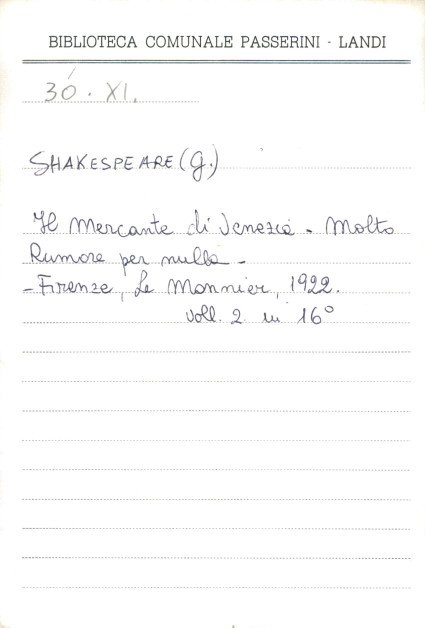 BIBLIOTECA COMUNALE PASSERINI - LANDI
30. XI.
SHAKESPEARE (G.)
Il Mercante di Venezia - Molto
Rumore per nulla -
- Firenze, Le Monnier, 1922.
voll. 2 in 16°